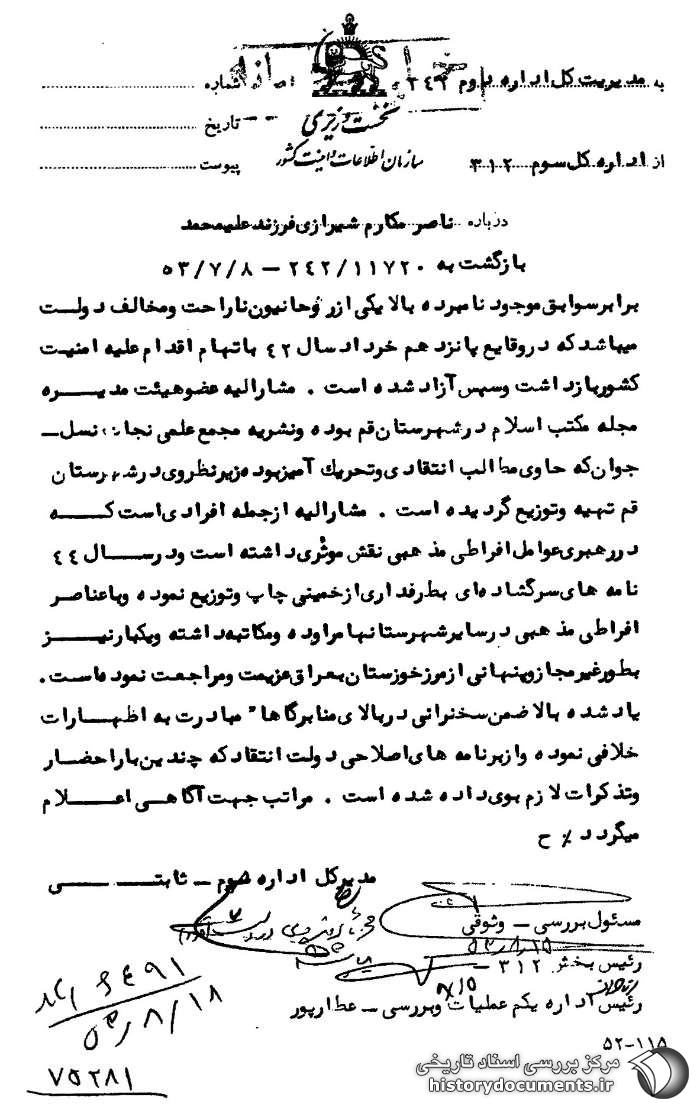 به مدیریت کل اداره دوم ۲۴۲
شماره
نخست وزیری
تاریخ
از اداره کل سوم ۳۱۲
سازمان اطلاعات و امنیت کشور
پیوست
درباره ناصر مکارم شیرازی فرزند علیمحمد
بازگشت به ۲۴۲/۱۱۷۲۰ – ۵۳/۷/۸
برابر سوابق موجود نامبرده بالا یکی از روحانیون ناراحت ومخالف دولت
میباشد که در وقایع پانزدهم خرداد سال ۴۲ باتهام اقدام علیه امنیت
کشور بازداشت وسپس آزاد شده است . مشارالیه عضو هیئت مدیره
مجله مکتب اسلام در شهرستان قم بوده ونشریه مجمع علمی نجات نسل ـ
جوان که حاوی مطالب انتقادی وتحریک آمیز بوده زیر نظر وی در شهرستان
قم تهیه وتوزیع گردیده است . مشارالیه از جمله افرادی است که
در رهبری عوامل افراطی مذهبی نقش موثری داشته است ودر سال ۴۴
نامه های سرگشاده ای بطرفداری از خمینی چاپ وتوزیع نموده وبا عناصر
افراطی مذهبی در سایر شهرستانها مراوده ومکاتبه داشته ویکبار نیز
بطور غیر مجاز وپنهانی از مرز خوزستان بعراق عزیمت ومراجعت نموده است.
یاد شده بالا ضمن سخنرانی در بالای منابر گاها" مبادرت به اظهارات
خلافی نموده واز برنامه های اصلاحی دولت انتقاد که چندین بار احضار
وتذکرات لازم بوی داده شده است . مراتب جهت آگاهی اعلام
میگردد ٪ ح
مدیر کل اداره سوم ـ ثابتی
مسئول بررسی ـ وثوقی
۵۳/۸/۱۵
رئیس بخش ۳۱۲ ـ
۸/۱۵
رئیس اداره یکم عملیات وبررسی ـ عطارپور
۶۴۹۱
۵۳/۸/۱۸
۷۵۲۸۱
۵۲-۱۱۵
مرکز بررسی اسناد تاریخی
historydocuments.ir